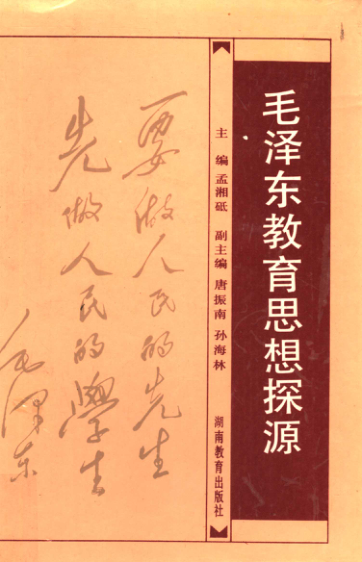 毛泽东教育思想探源
主编 孟湘砥 副主编 唐振南 孙海林
湖南教育出版社
要做人民的先生
先做人民的學生
毛泽东